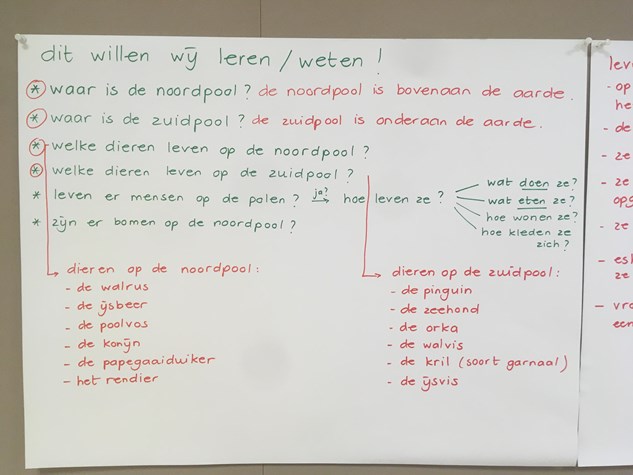 dit willen wij leren/weten!
* waar is de noordpool? de noordpool is bovenaan de aarde.
* waar is de zuidpool? de zuidpool is onderaan de aarde.
* welke dieren leven op de noordpool?
* welke dieren leven op de zuidpool?
* leven er mensen op de polen? ja? → hoe leven ze?
wat doen ze?
wat eten ze?
hoe wonen ze?
hoe kleden ze
zich?
* zijn er bomen op de noordpool?
dieren op de noordpool:
- de walrus
- de ijsbeer
- de poolvos
- de konijn
- de papegaaiduiker
- het rendier
dieren op de zuidpool:
- de pinguin
- de zeehond
- de orka
- de walvis
- de kril (soort garnaal)
- de ijsvis
lev
- op
he
- de
- ze
- ze
opg
- ze
- esk
ze
- vro
een